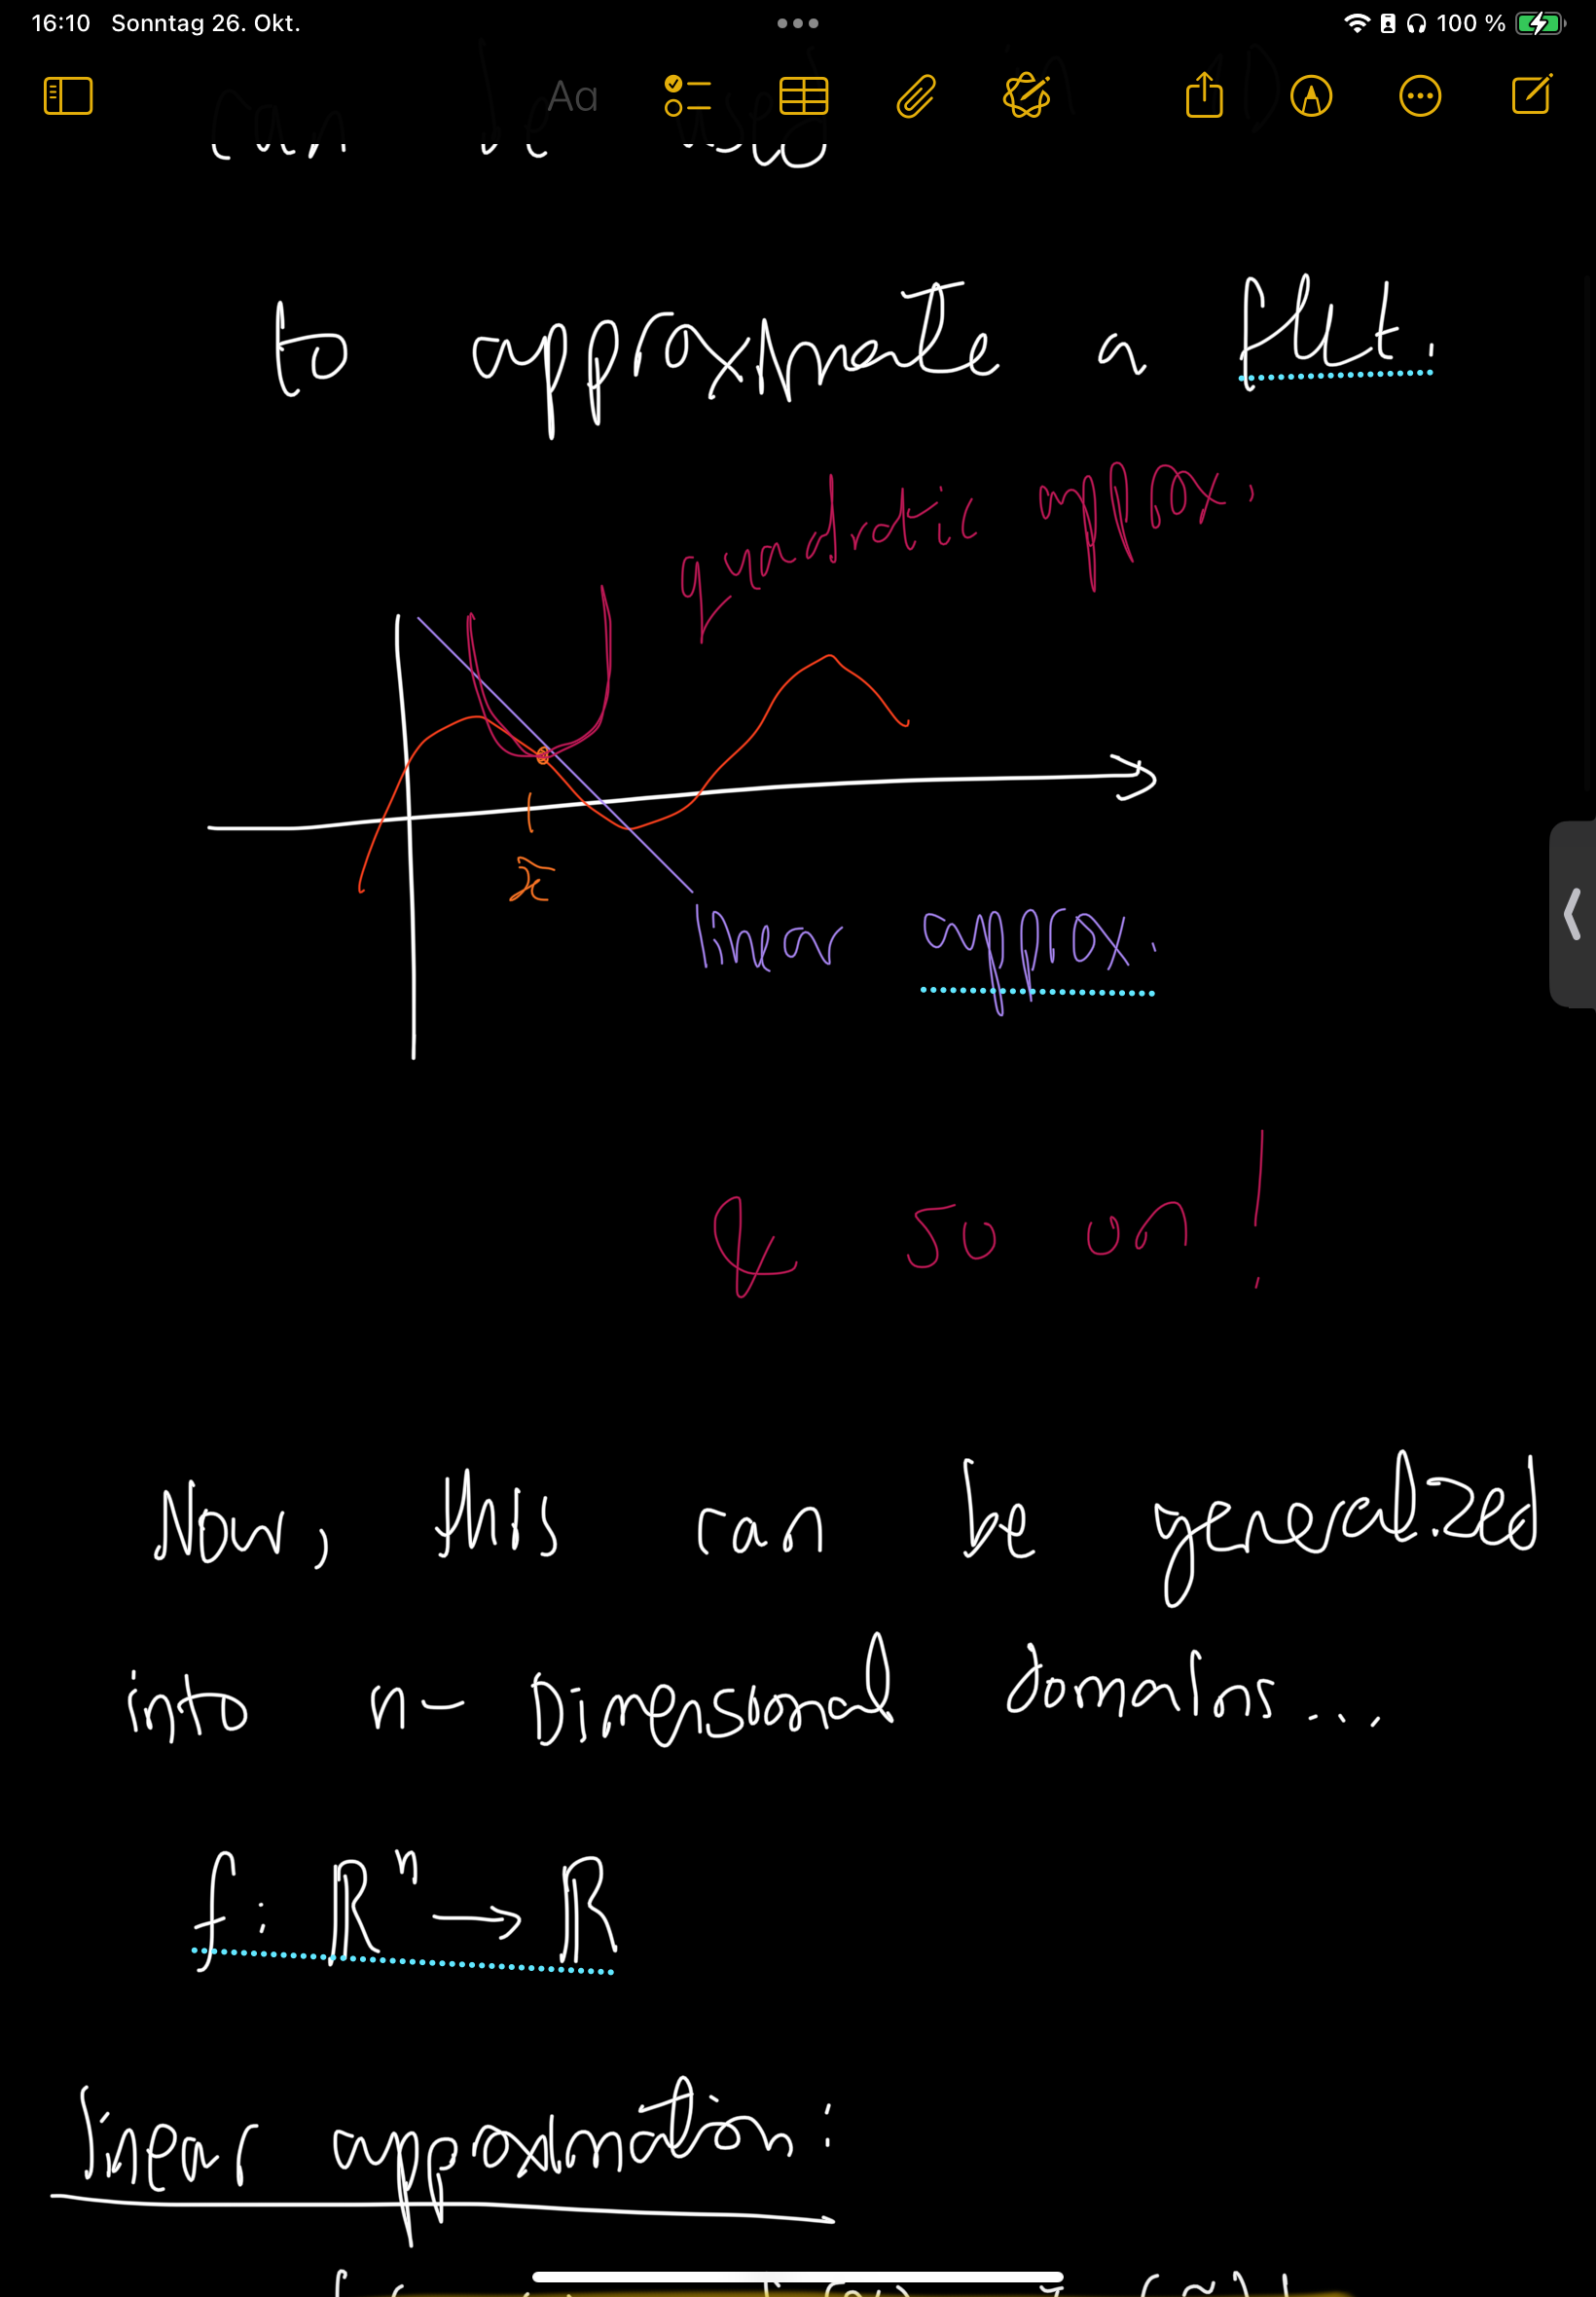 16:10 Sonntag 26. Okt. 100 %
Aa
can be used
to approximate a fkt.
quadratic approx.
x̃
linear approx.
& so on!
Now, this can be generalized
into n-Dimensional domains...
f: ℝⁿ → ℝ
linear approximation: